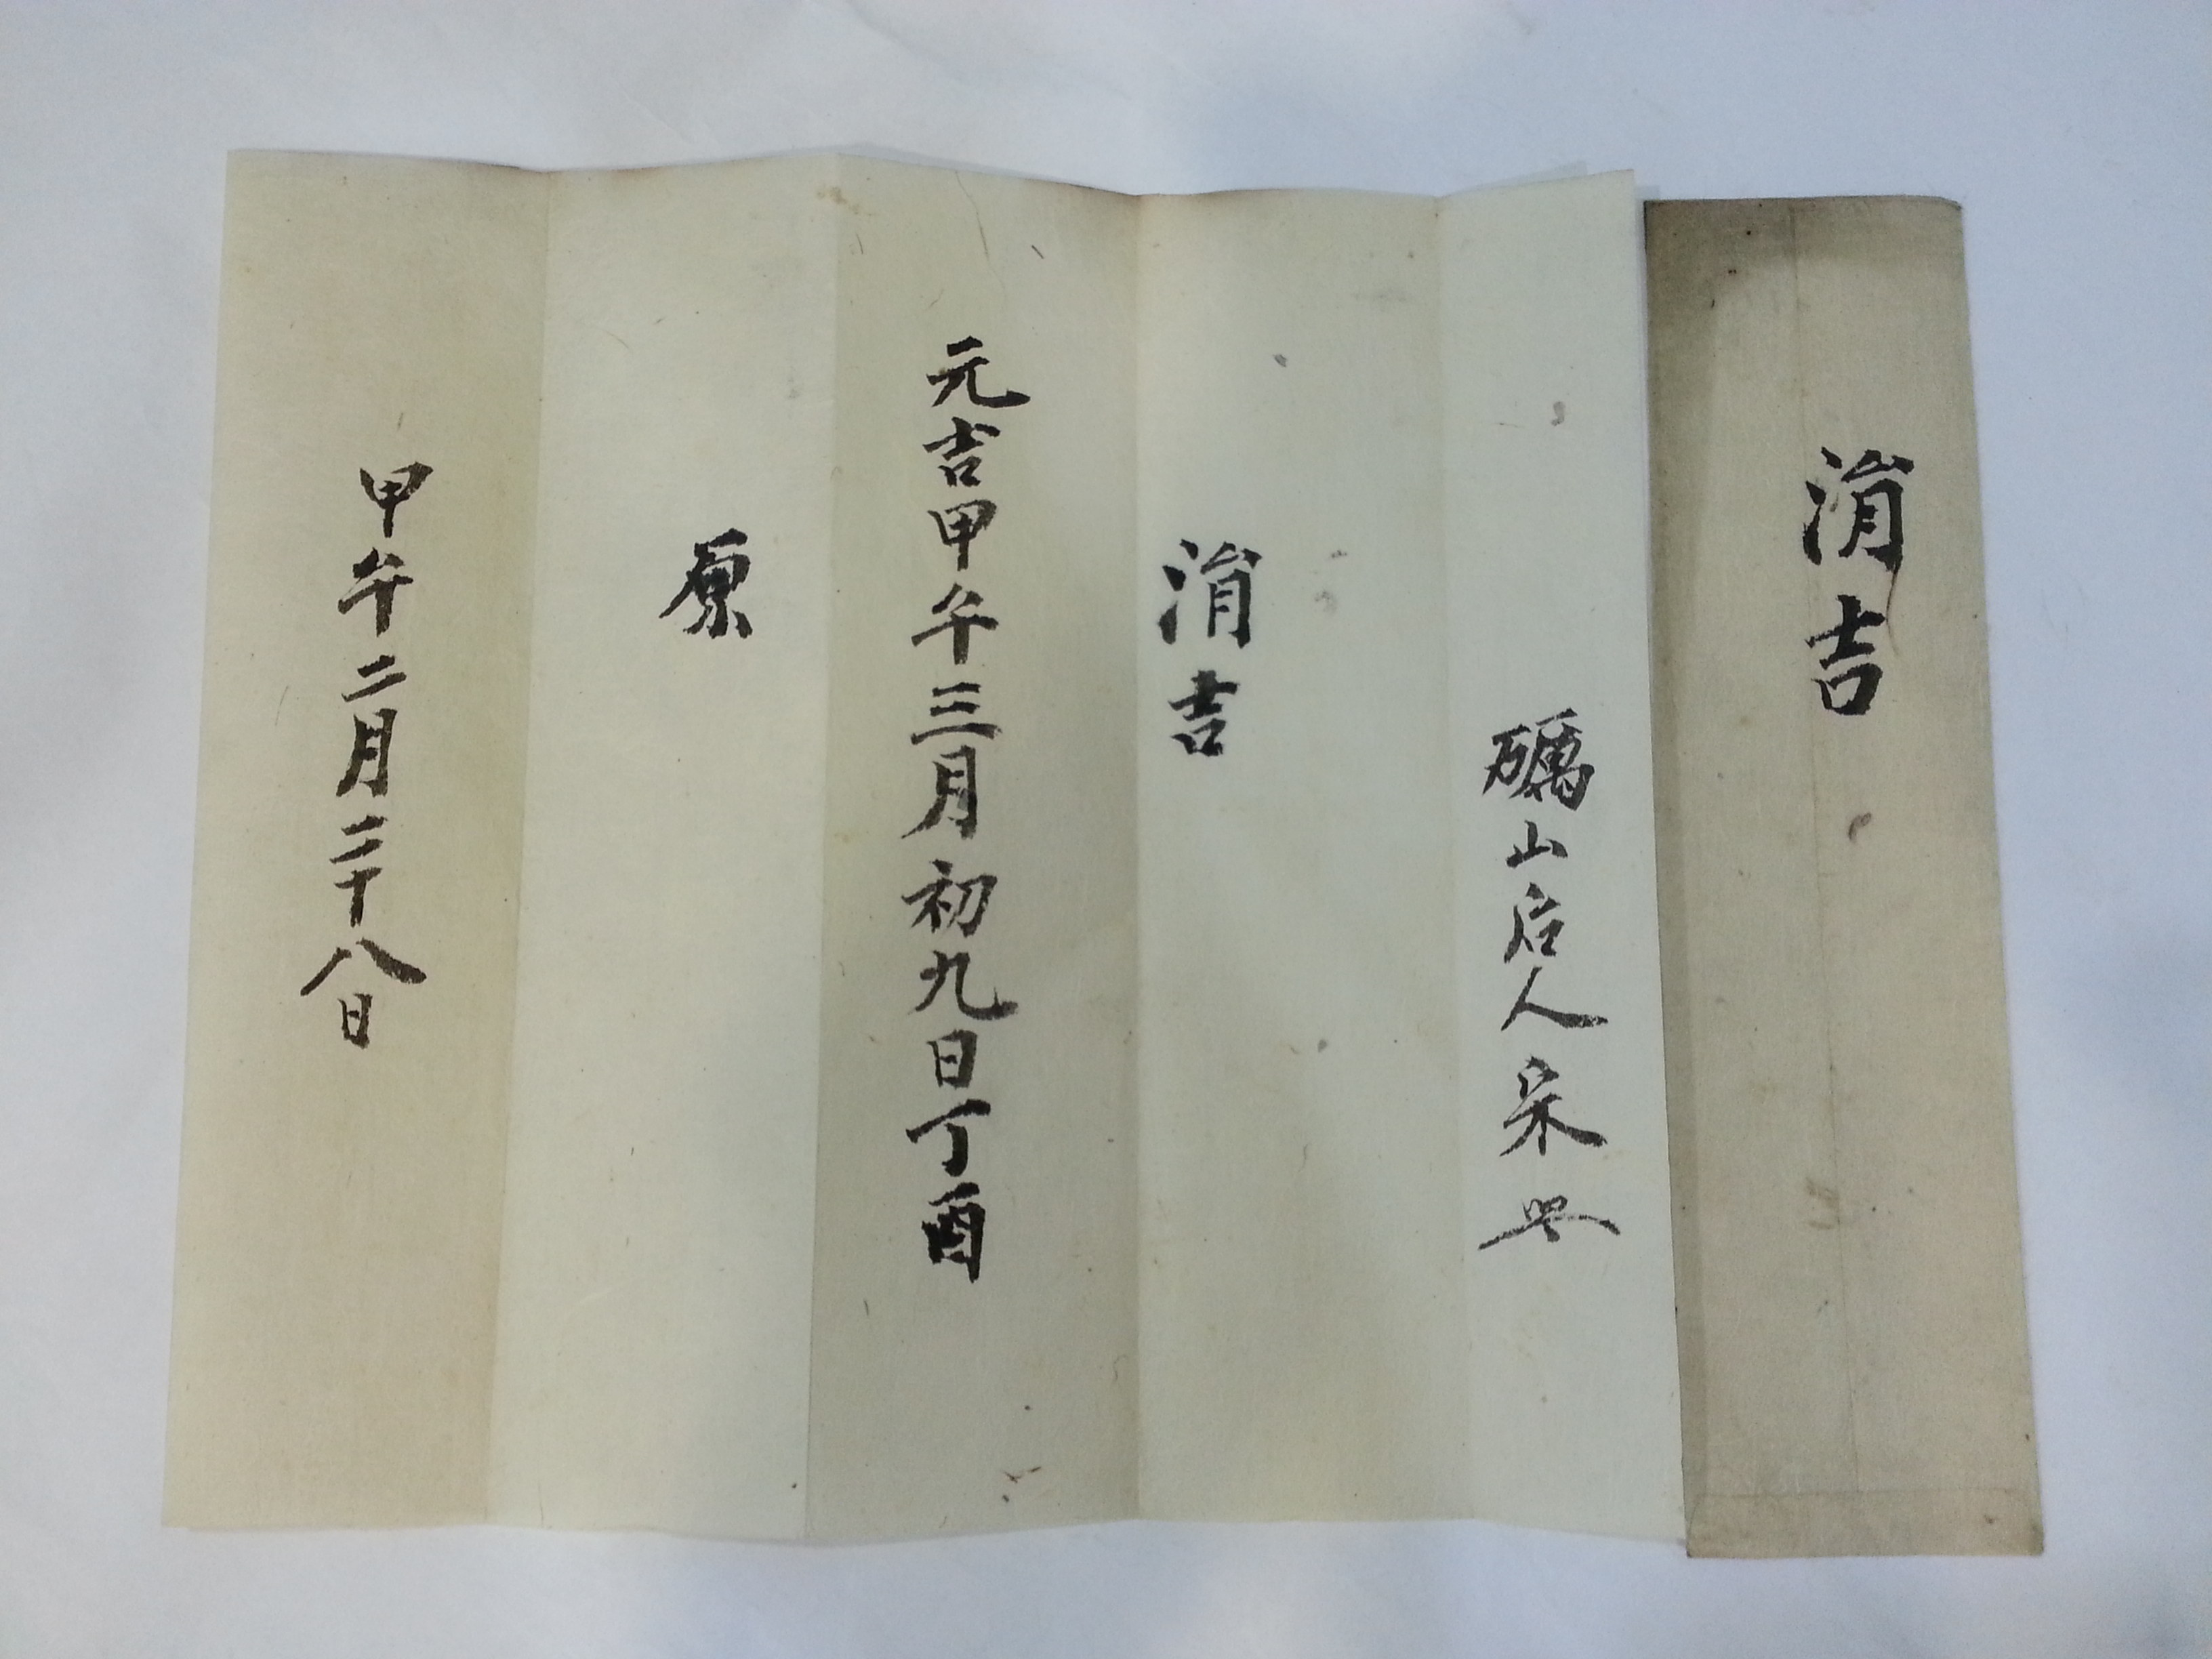 涓吉
礪山后人宋
涓吉
元吉甲午三月初九日丁酉
原
甲午二月二十八日